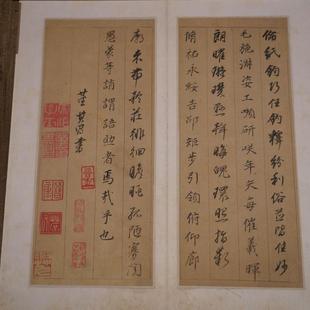 倫紙鈞巧任釣釋紛利俗並皆佳妙
毛施淑姿工顰妍笑年矢每催羲暉
朗曜璇璣懸斡晦魄環照指薪
脩祜永綏吉劭矩步引領俯仰廊
廟束帶矜莊徘徊瞻眺孤陋寡聞
愚蒙等誚謂語助者焉哉乎也
董其昌書